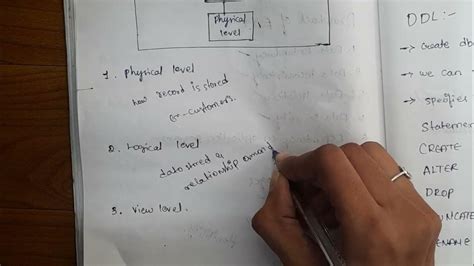 Physical
level
1. Physical level
how record is stored
ex-customers.
2. Logical level
data stored &
relationship among d
3. View level.
DDL:-
→ create db
→ we can
→ specifies
Statemen
CREATE
ALTER
DROP
UNCATE
ENAME